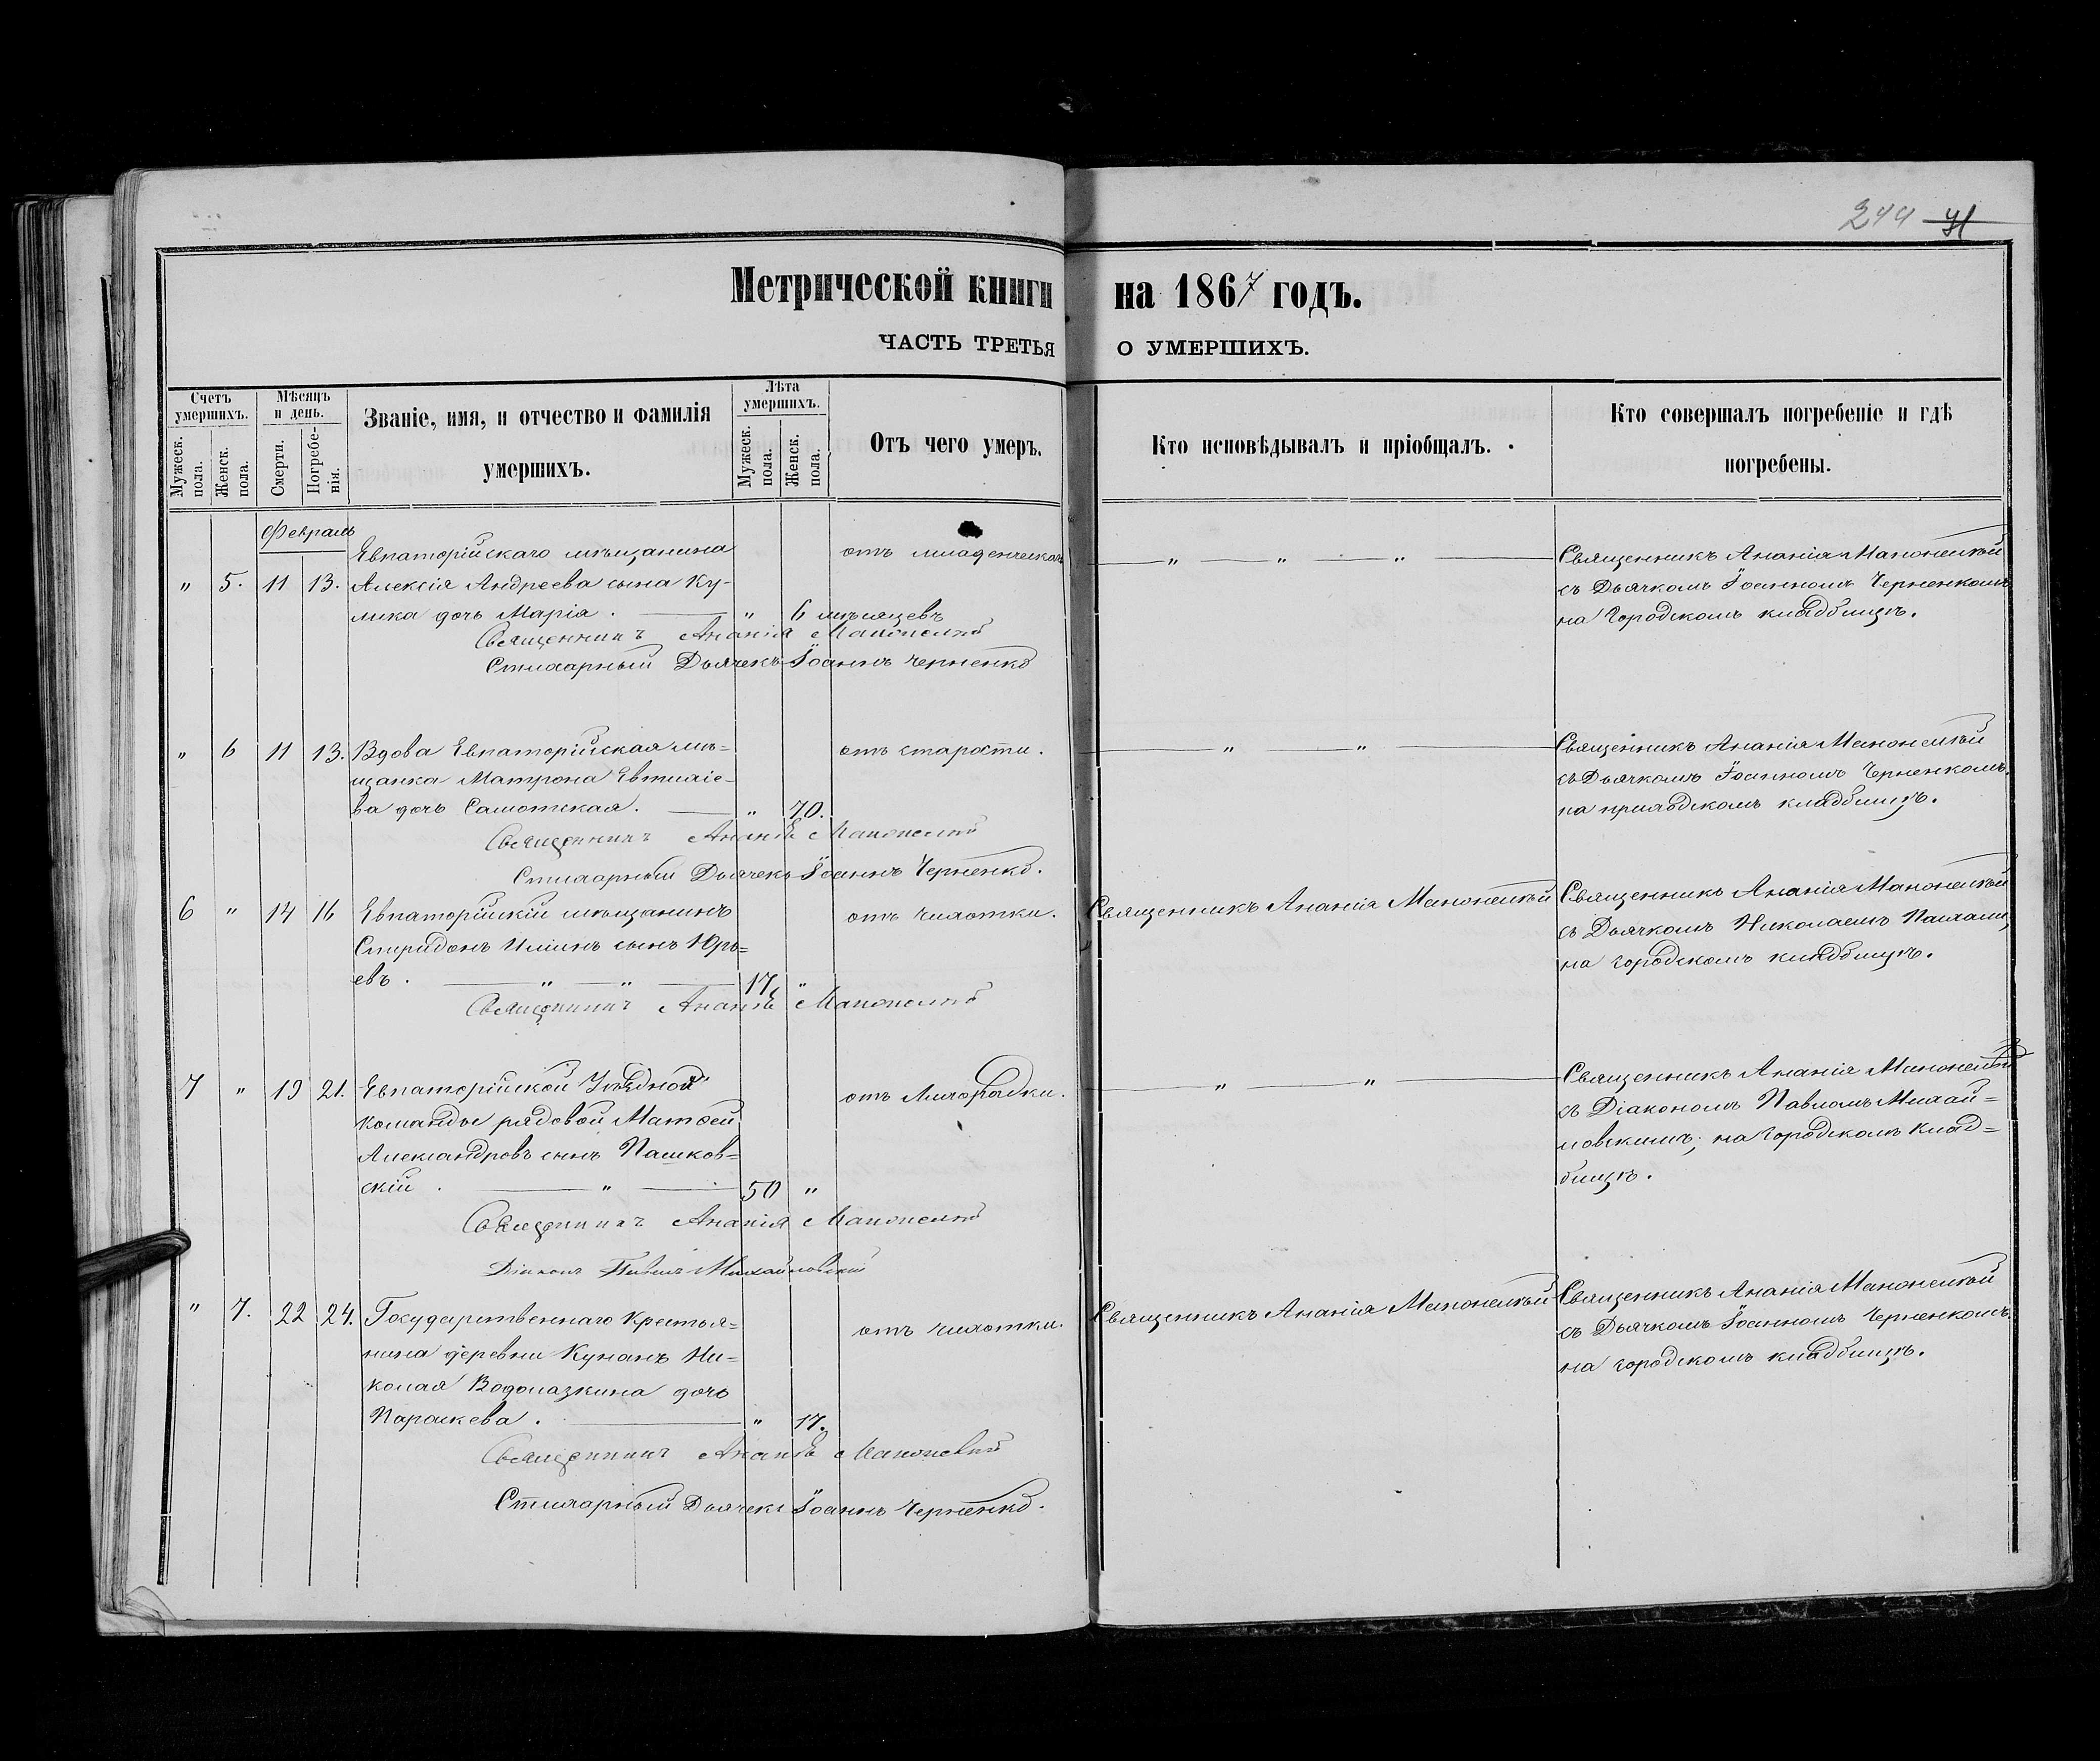 244 71
Метрической книги на 1867 годъ.
ЧАСТЬ ТРЕТЬЯ О УМЕРШИХЪ.
Счетъ умершихъ.
Мужеск. пола.
Женск. пола.
Мѣсяцъ и день.
Смерти.
Погребенія.
Званіе, имя, и отчество и фамилія
умершихъ.
Лѣта умершихъ.
Мужеск. пола.
Женск. пола.
Отъ чего умеръ.
Кто исповѣдывалъ и пріобщалъ.
Кто совершалъ погребеніе и гдѣ
погребены.
Февраль
Евпаторійскаго мѣщанина отъ младенческой — „ — „ — „ — Священникъ Ананія
„ 5. 11 13. Алексія Андреева сына Ку- съ Дьячкомъ Іоанномъ Черненкомъ
лика дочь Марія. — „ 6 мѣсяцевъ на Городскомъ кладбищѣ.
Священникъ Ананія
Стихарный Дьячекъ Іоаннъ Черненко
„ 6 11 13. Вдова Евпаторійская мѣ= отъ старости. — „ — „ — Священникъ Ананія
щанка Матрона Евтихіе- съ Дьячкомъ Іоанномъ Черненкомъ.
ва дочь . — „ 70. на приходскомъ кладбищѣ.
Священникъ Ананія
Стихарный Дьячекъ Іоаннъ Черненко.
6 „ 14 16 Евпаторійскій мѣщанинъ отъ чихотки. Священникъ Ананія Священникъ Ананія
Спиридонъ Ильинъ сынъ Юрь= съ Дьячкомъ Николаемъ
евъ. — „ — „ — 17. „ на городскомъ кладбищѣ.
Священникъ Ананія
7 „ 19 21. Евпаторійской Уѣздной отъ Лихорадки. — „ — „ — Священникъ Ананія
команды рядовой Матѳей съ Діакономъ Павломъ Михай=
Александровъ сынъ Пашков= ловскимъ; на Городскомъ Клад=
скій. — „ — 50 „ бищѣ.
Священникъ Ананія
Діаконъ Павелъ Михайловскій
„ 7. 22 24. Государственнаго Крестья= отъ чихотки. Священникъ Ананія Священникъ Ананія
нина деревни Кунанъ Ни= съ Дьячкомъ Іоанномъ Черненкомъ
колая Водолазкина дочь на городскомъ кладбищѣ.
Параскева. — „ 17.
Священникъ Ананія
Стихарный Дьячекъ Іоаннъ Черненко.